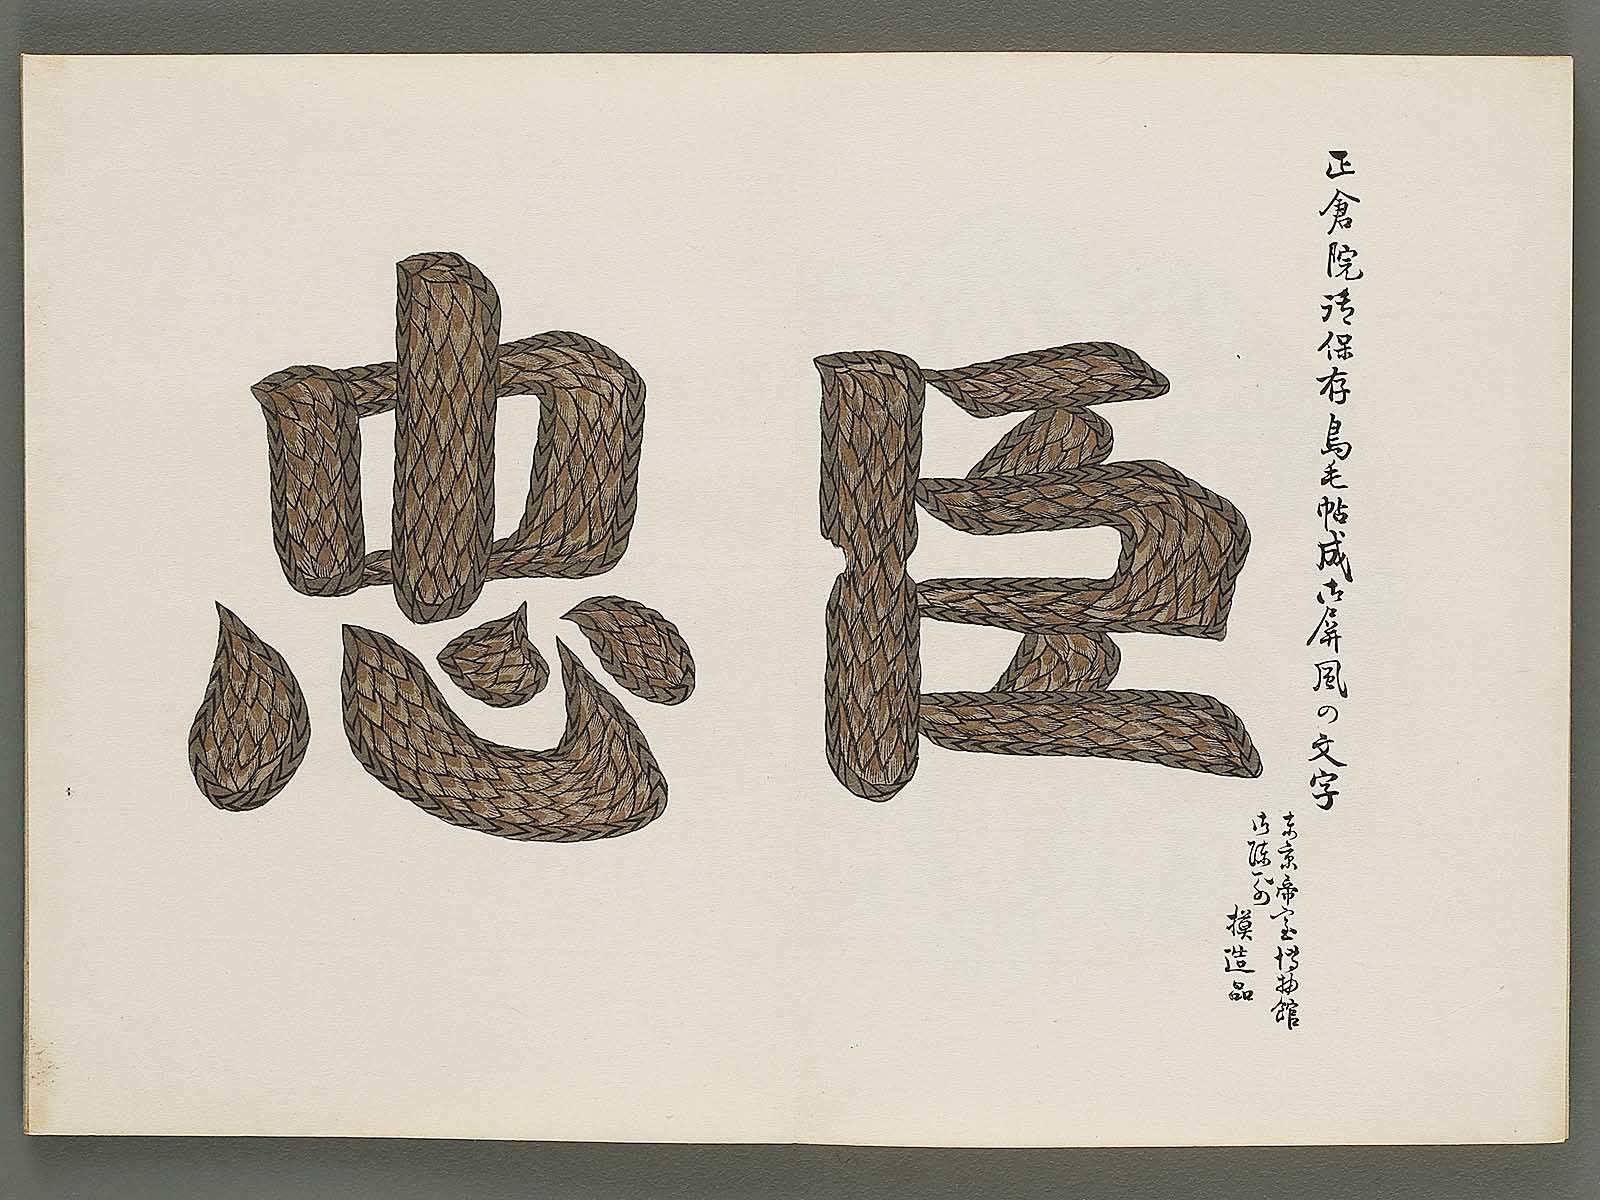 正倉院御保存鳥毛帖成御屏風の文字
東京帝室博物館
御陳列
模造品
臣
忠